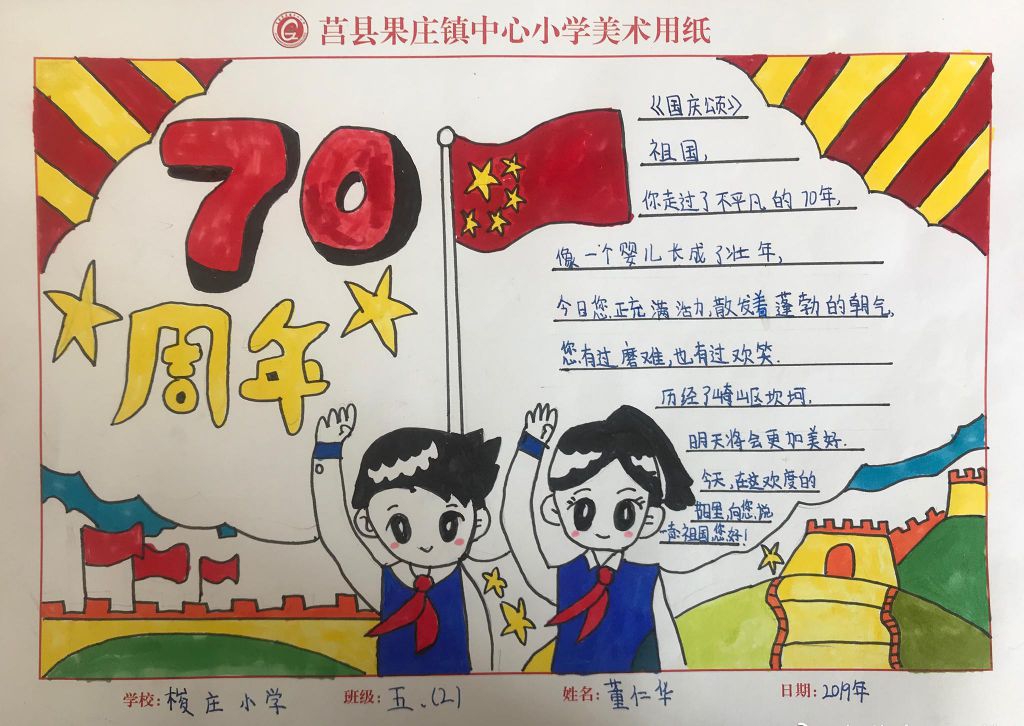 莒县果庄镇中心小学美术用纸
70
周年
《国庆颂》
祖国,
你走过了不平凡的70年,
像一个婴儿长成了壮年,
今日您正充满活力,散发着蓬勃的朝气,
您有过磨难,也有过欢笑.
历经了崎岖坎坷,
明天将会更加美好.
今天,在这欢度的
里,向您说
祖国,您好!
学校: 庄小学
班级: 五.(2)
姓名: 董仁华
日期: 2019年